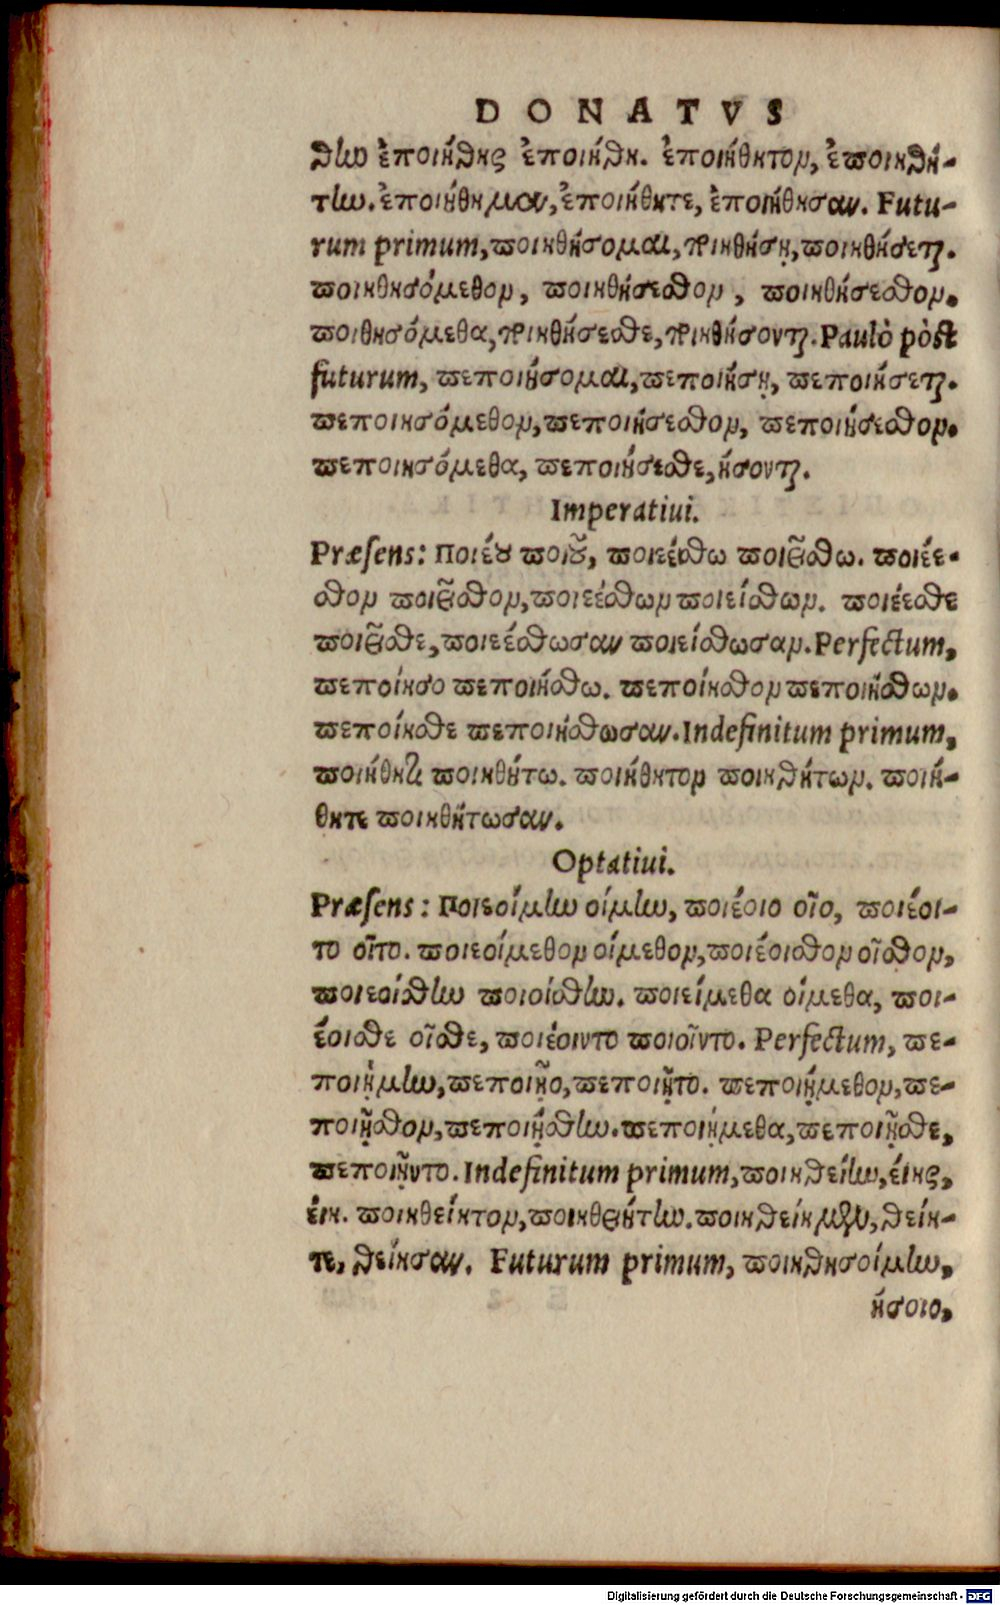 DONATVS
θην ἐποιήθης ἐποιήθη. ἐποιήθητον, ἐποιηθή-
την. ἐποιήθημεν, ἐποιήθητε, ἐποιήθησαν. Futu-
rum primum, ποιηθήσομαι, ποιηθήσῃ, ποιηθήσεται.
ποιηθησόμεθον, ποιηθήσεσθον, ποιηθήσεσθον.
ποιθησόμεθα, ποιηθήσεσθε, ποιηθήσονται. Paulò pòst
futurum, πεποιήσομαι, πεποιήσῃ, πεποιήσεται.
πεποιησόμεθον, πεποιήσεσθον, πεποιήσεσθον.
πεποιησόμεθα, πεποιήσεσθε, ήσονται.
Imperatiui.
Præsens: Ποιέου ποιοῦ, ποιεέσθω ποιείσθω. ποιέε-
σθον ποιεῖσθον, ποιεέσθων ποιείσθων. ποιέεσθε
ποιεῖσθε, ποιεέσθωσαν ποιείσθωσαν. Perfectum,
πεποίησο πεποιήσθω. πεποίησθον πεποιήσθων.
πεποίησθε πεποιήσθωσαν. Indefinitum primum,
ποιήθητι ποιηθήτω. ποιήθητον ποιηθήτων. ποιή-
θητε ποιηθήτωσαν.
Optatiui.
Præsens: Ποιεοίμην οίμην, ποιέοιο οῖο, ποιέοι-
το οῖτο. ποιεοίμεθον οίμεθον, ποιέοισθον οῖσθον,
ποιεοίσθην ποιοίσθην. ποιείμεθα οίμεθα, ποι-
έοισθε οῖσθε, ποιέοιντο ποιοῖντο. Perfectum, πε-
ποιῄμην, πεποιῇο, πεποιῇτο. πεποιῄμεθον, πε-
ποιῇσθον, πεποιῄσθην. πεποιῄμεθα, πεποιῇσθε,
πεποιῇντο. Indefinitum primum, ποιηθείην, είης,
είη. ποιηθείητον, ποιηθειήτην. ποιηθείημεν, θείη-
τε, θείησαν. Futurum primum, ποιηθησοίμην,
ήσοιο,
Digitalisierung gefördert durch die Deutsche Forschungsgemeinschaft - DFG